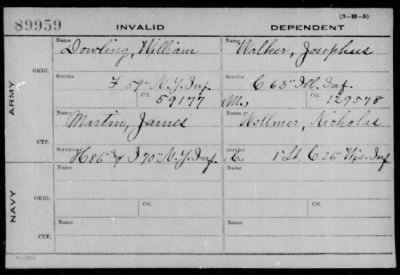 (3-H-5)
89959 INVALID DEPENDENT
Name Dowling, William Name Walker, Josephus
ARMY
ORIG.
Service F 59" N.Y. Inf. Service C 63" Ill. Inf.
Ctf. 59177 M., Ctf. 127578
Name Martin, James Name Wollmer, Nicholas
CTF.
Service H 86" & I 70" N.Y. Inf. Service 1" Lt. C 26" Wis. Inf.
Name Name
NAVY
ORIG.
Service Ctf. Service Ctf.
Name Name
CTF.
Service Service